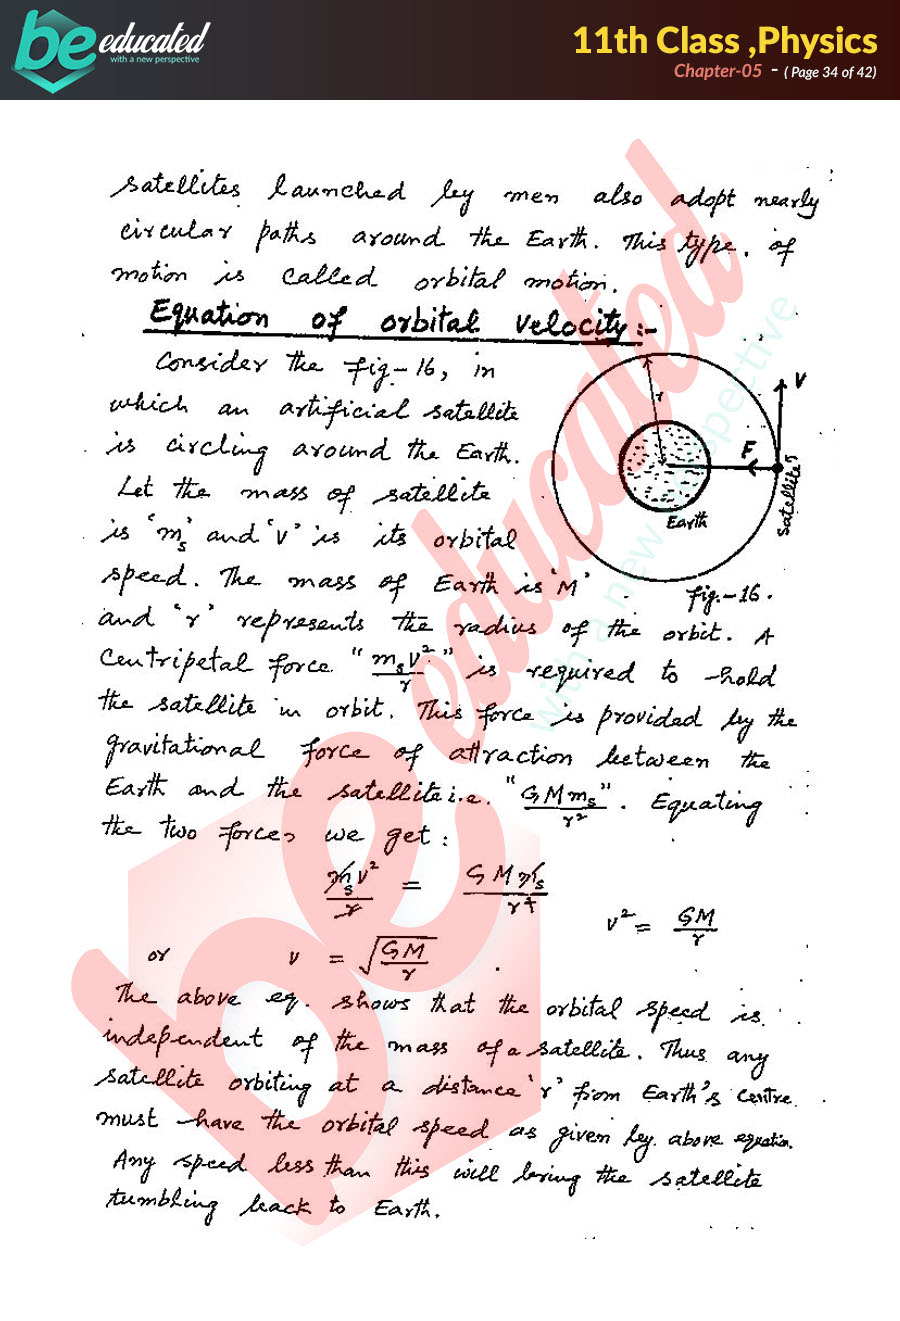 be educated
with a new perspective
11th Class ,Physics
Chapter-05 - ( Page 34 of 42)
satellites launched by men also adopt nearly
circular paths around the Earth. This type of
motion is called orbital motion.
Equation of orbital velocity:-
Consider the fig-16, in
which an artificial satellite
is circling around the Earth.
Let the mass of satellite
is 'ms' and 'v' is its orbital
speed. The mass of Earth is 'M'
and 'r' represents the radius of the orbit. A
Centripetal force "msv²/r" is required to hold
the satellite in orbit. This force is provided by the
gravitational force of attraction between the
Earth and the satellite i.e. "GMms/r²". Equating
the two forces we get:
msv²/r = GMms/r²
v² = GM/r
or v = √GM/r
The above eq. shows that the orbital speed is
independent of the mass of a satellite. Thus any
satellite orbiting at a distance 'r' from Earth's centre
must have the orbital speed as given by above equation.
Any speed less than this will bring the satellite
tumbling back to Earth.
r
V
F
Satellite
Earth
fig.-16.
be educated
with a new perspective